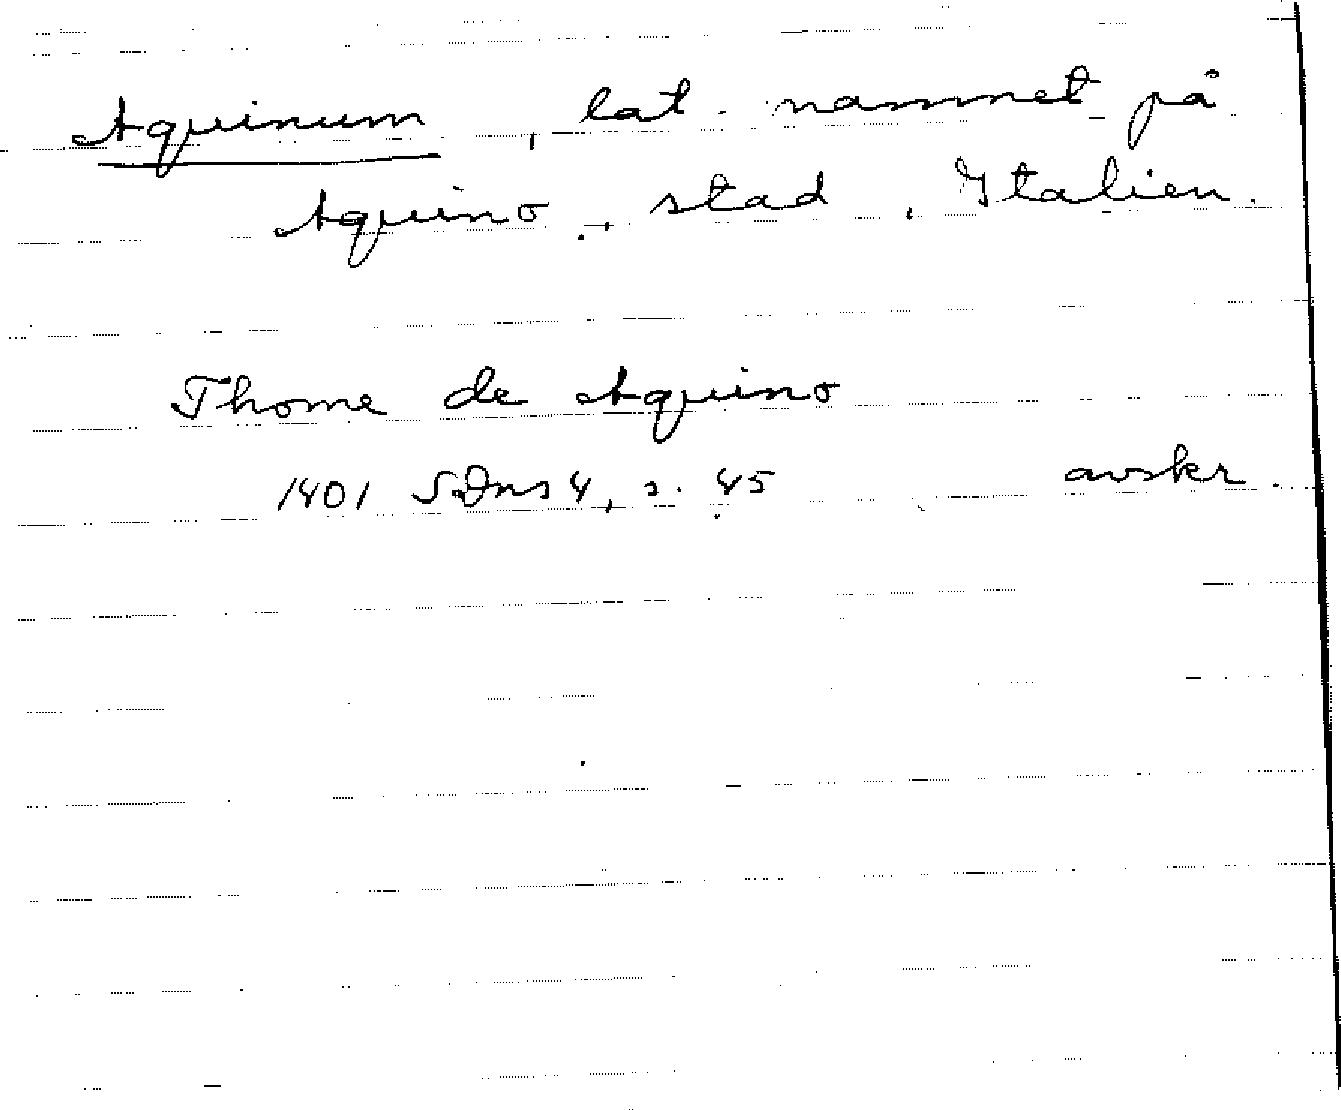 Aquinum, lat. namnet på
Aquino, stad, Italien.
Thome de Aquino
1401 SDns 4, s. 45 avskr.